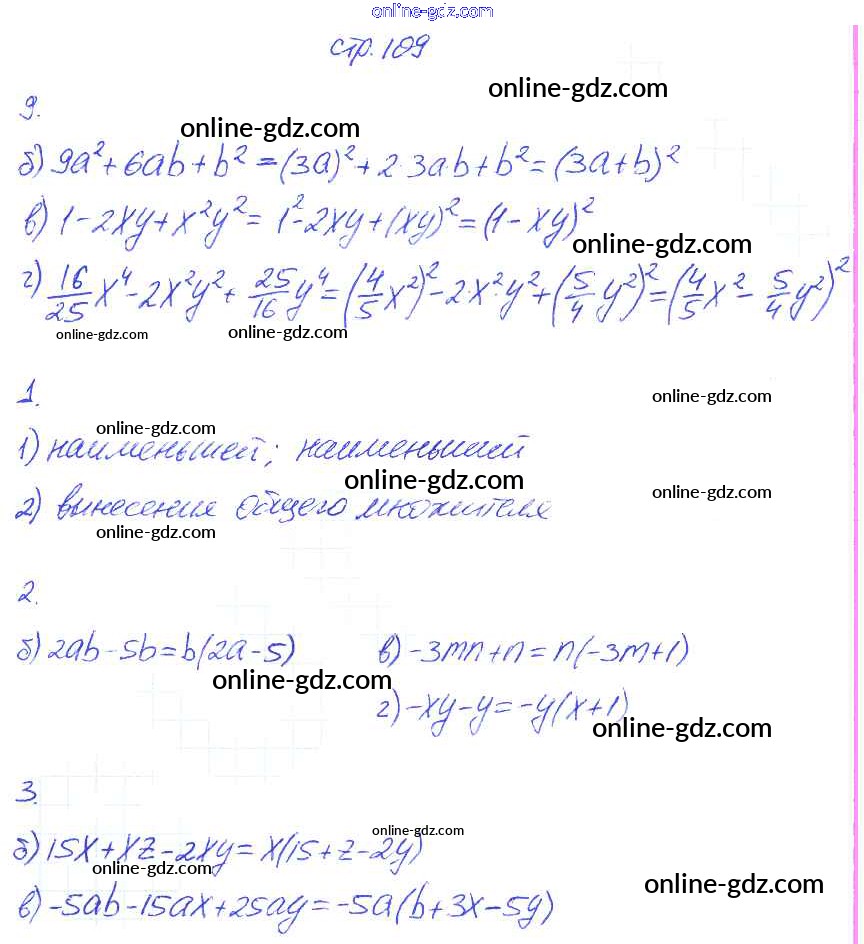 online-gdz.com
стр. 109
online-gdz.com
9.
online-gdz.com
б) 9a² + 6ab + b² = (3a)² + 2·3ab + b² = (3a + b)²
в) 1 - 2xy + x²y² = 1² - 2xy + (xy)² = (1 - xy)²
online-gdz.com
г) 16/25 x⁴ - 2x²y² + 25/16 y⁴ = (4/5 x²)² - 2·x²·y² + (5/4 y²)² = (4/5 x² - 5/4 y²)²
online-gdz.com online-gdz.com
1.
online-gdz.com
online-gdz.com
1) наименьшей; наименьший
online-gdz.com
online-gdz.com
2) вынесения общего множителя
online-gdz.com
2.
б) 2ab - 5b = b(2a - 5) в) -3mn + n = n(-3m + 1)
online-gdz.com
г) -xy - y = -y(x + 1)
online-gdz.com
3.
online-gdz.com
б) 15x + xz - 2xy = x(15 + z - 2y)
online-gdz.com
online-gdz.com
в) -5ab - 15ax + 25ay = -5a(b + 3x - 5y)